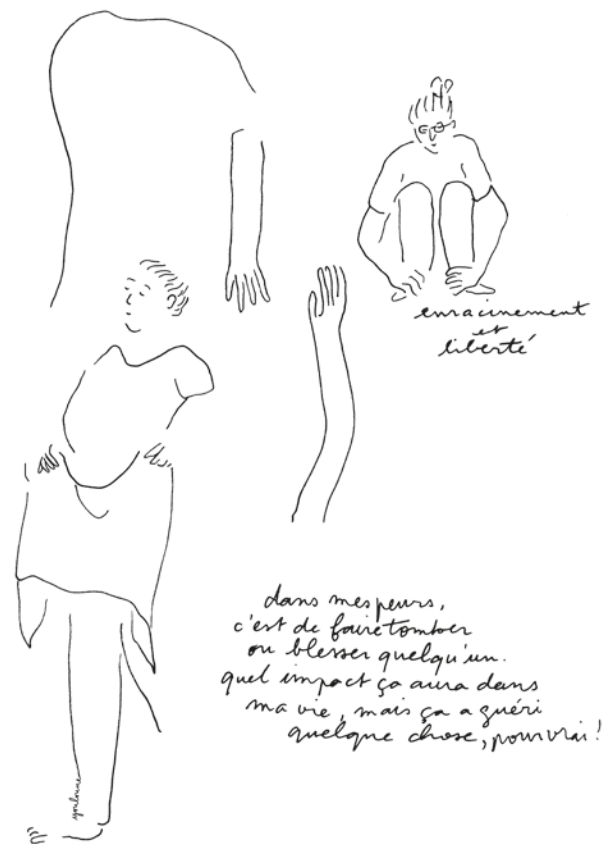 enracinement
et
liberté
dans mes peurs,
c'est de faire tomber
ou blesser quelqu'un.
quel impact ça aura dans
ma vie, mais ça a guéri
quelque chose, pour vrai!